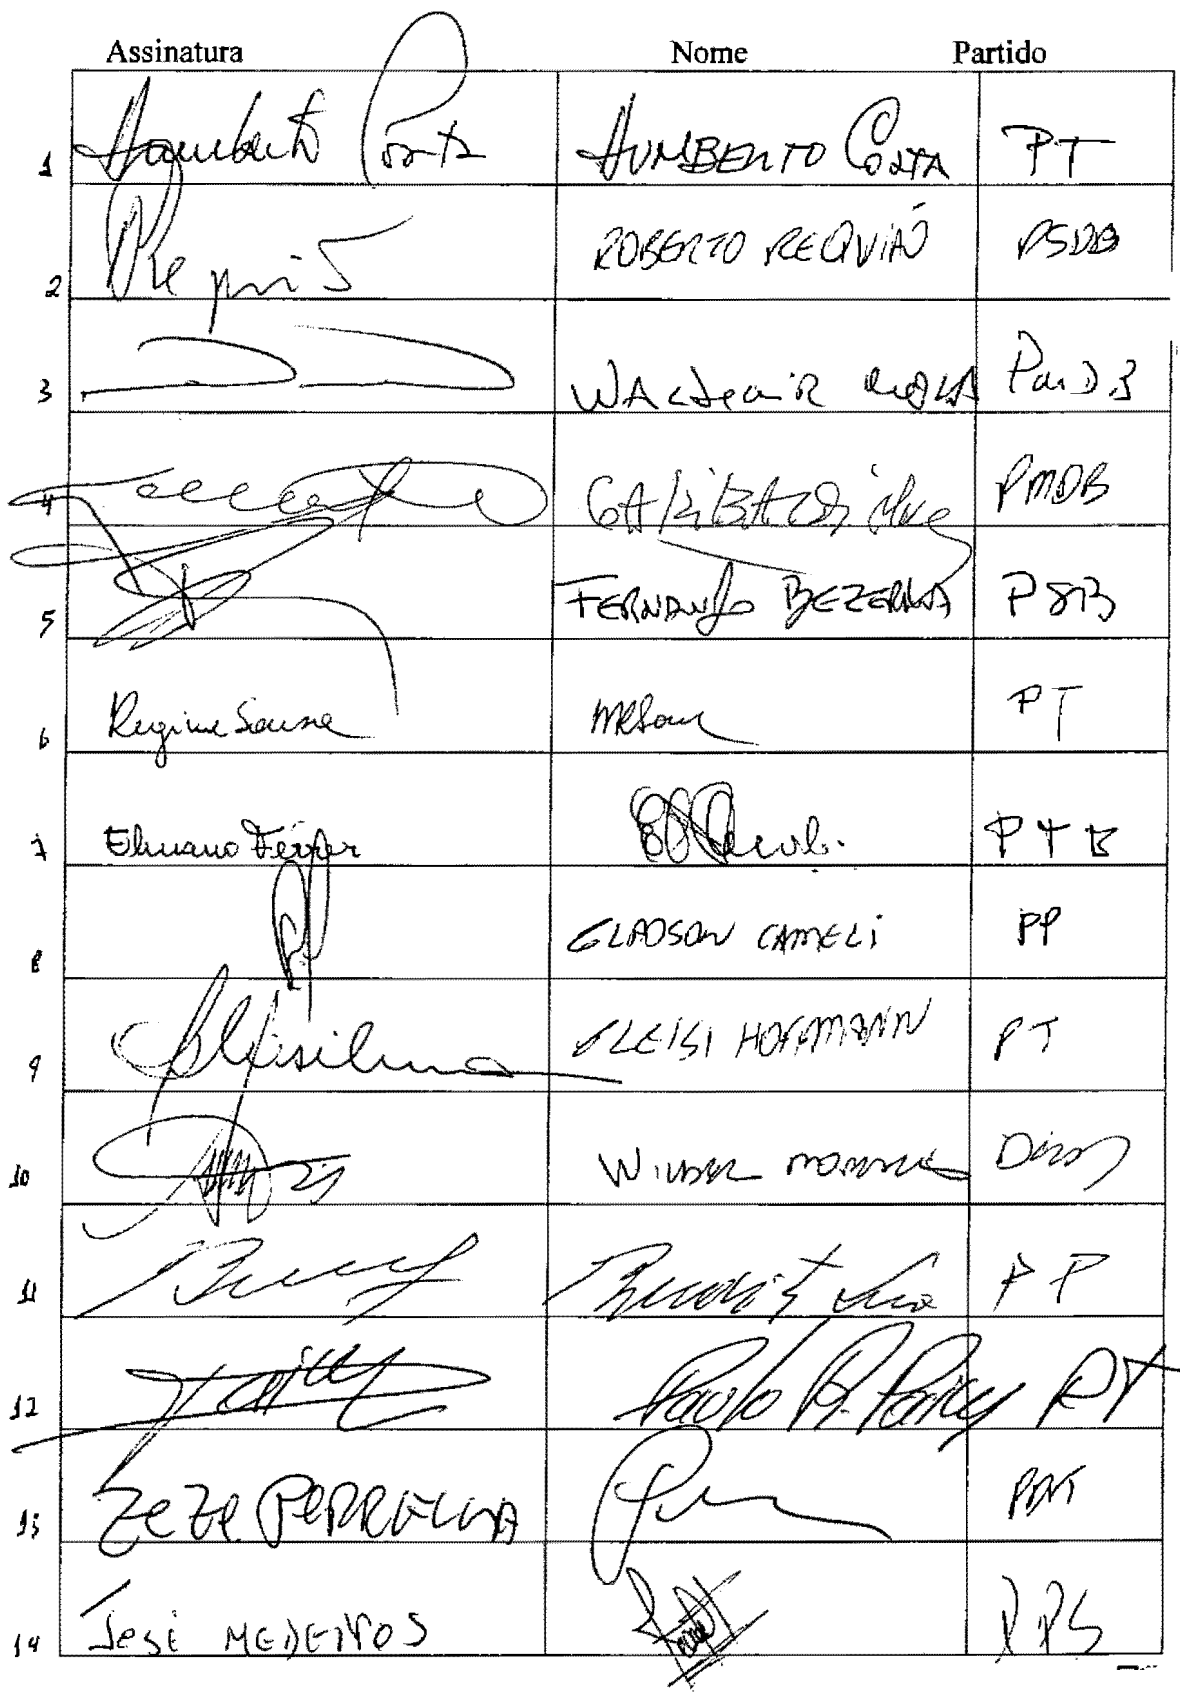 Assinatura Nome Partido
1 Humberto Costa HUMBERTO COSTA PT
2 Requião ROBERTO REQUIÃO PSDB
3 WALDEMIR MOKA PMDB
4 GARIBALDI Alves PMDB
5 FERNANDO BEZERRA PSB
6 Regina Sousa MRSousa PT
7 Elmano Férrer PTB
8 GLADSON CAMELI PP
9 GLEISI HOFFMANN PT
10 WILDER MORAIS
11 Benedito Lira PP
12 Paulo R. Paim PT
13 ZEZE PERRELLA PDT
14 José MEDEIROS PPS